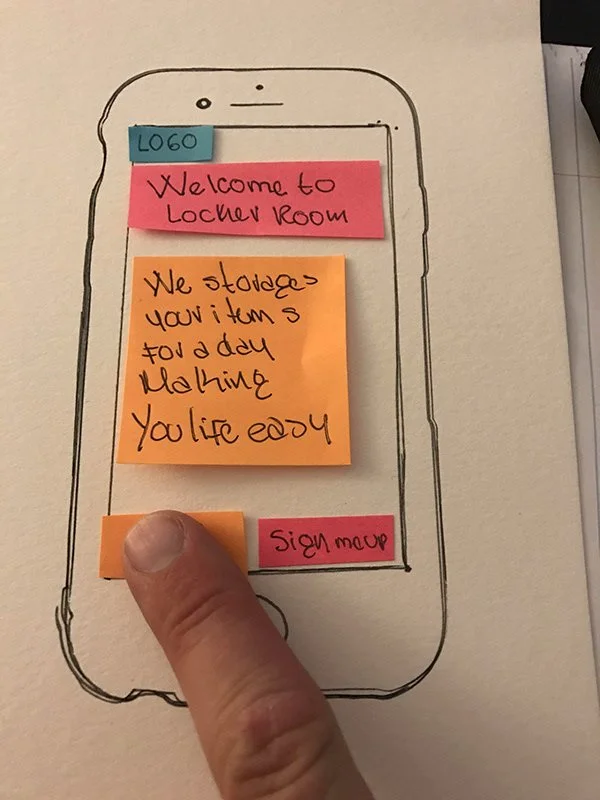 LOGO
Welcome to
Locker Room
We storages
your items
For a day
Making
You life easy
Sign me up